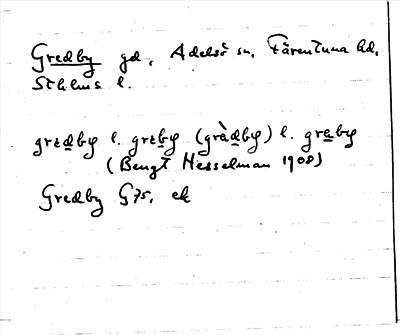 Gredby gd, Adelsö sn, Färentuna hd,
Sthlms l.
gredby l. greby (gràdby) l. graby
(Bengt Hesselman 1908)
Gredby G75. ek